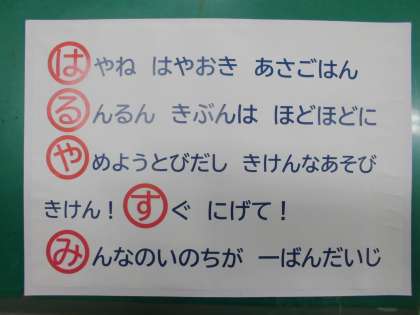 はやね はやおき あさごはん
るんるん きぶんは ほどほどに
やめようとびだし きけんなあそび
きけん！ すぐ にげて！
みんなのいのちが 一ばんだいじ